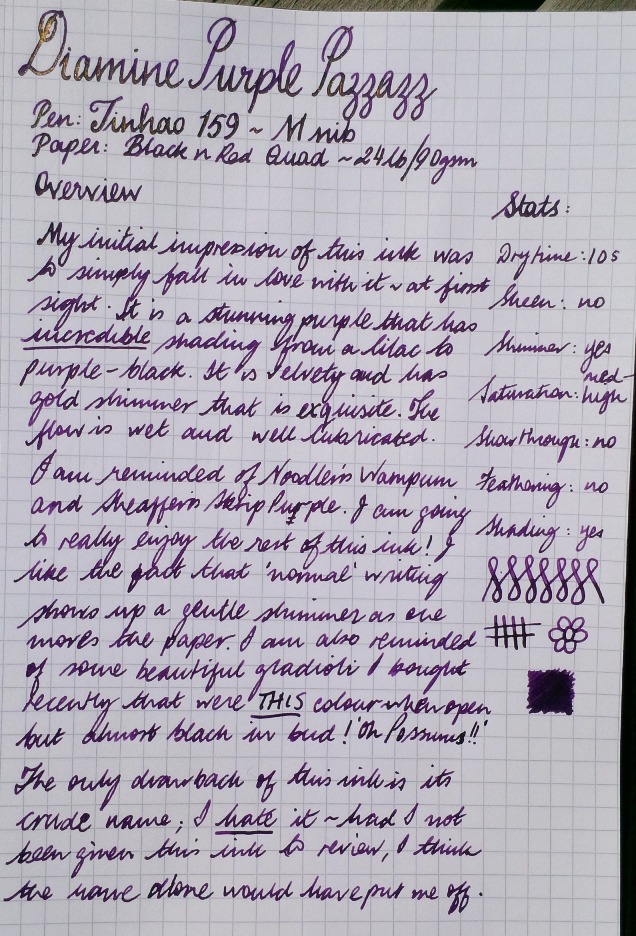 Diamine Purple Pazzazz
Pen: Jinhao 159 ~ M nib
Paper: Black n Red Quad ~ 24lb/90gsm
Overview
My initial impression of this ink was
to simply fall in love with it ~ at first
sight. It is a stunning purple that has
incredible shading from a lilac to
purple-black. It is velvety and has
gold shimmer that is exquisite. The
flow is wet and well lubricated.
I am reminded of Noodler's Wampum
and Sheaffer's Skrip Purple. I am going
to really enjoy the rest of this ink! I
like the fact that 'normal' writing
shows up a gentle shimmer as one
moves the paper. I am also reminded
of some beautiful gladioli I bought
recently that were THIS colour when open
but almost black in bud! 'Oh Possums!!'
The only drawback of this ink is its
crude name; I hate it ~ had I not
been given this ink to review, I think
the name alone would have put me off.
Stats:
Dry time: 10s
Sheen: no
Shimmer: yes
Saturation: med-
high
Show Through: no
Feathering: no
Shading: yes